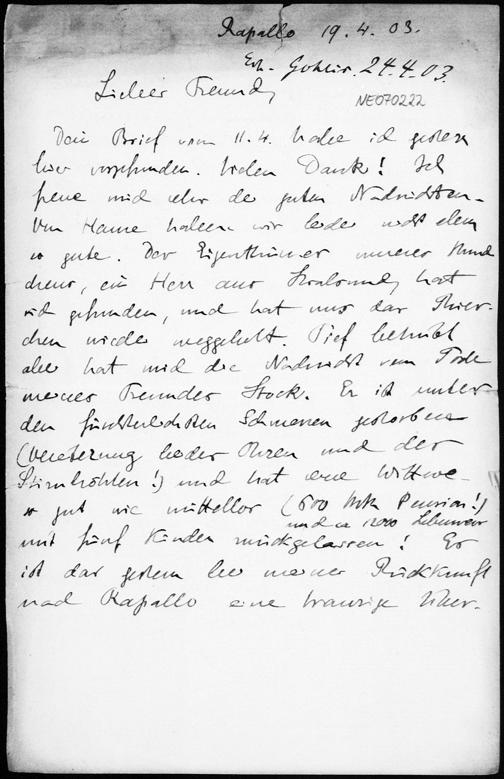 Rapallo 19.4.03.
Erh. Gohlis. 24.4.03.
NE070222
Lieber Freund,
Dein Brief vom 11.4. habe ich gestern
hier vorgefunden. Vielen Dank! Ich
freue mich sehr der guten Nachrichten.
Von Hause haben wir leider nicht eben
so gute. Der Eigenthümer unseres Hünd-
chens, ein Herr aus Stralsund, hat
sich gefunden, und hat uns das Thier-
chen wieder weggeholt. Tief betrübt
aber hat mich die Nachricht vom Tode
meines Freundes Stock. Er ist unter
den fürchterlichsten Schmerzen gestorben
(Vereiterung beider Ohren und der
Stirnhöhlen!) und hat eine Wittwe
so gut wie mittellos (600 Mk Pension!)
und ca 12000 Lebensver
mit fünf Kindern zurückgelassen! Es
ist das gestern bei meiner Rückkunft
nach Rapallo eine traurige Über-